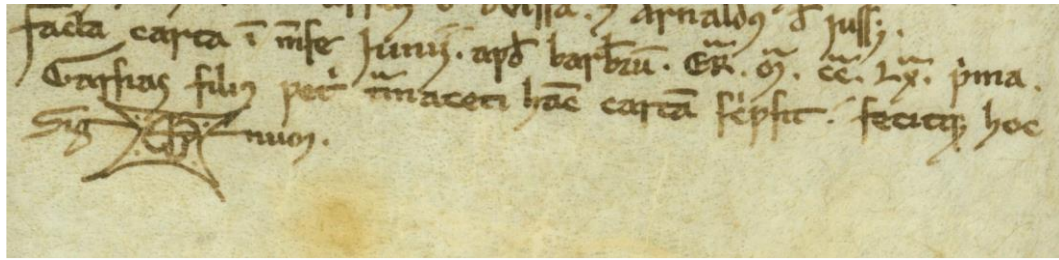 arnaldꝰ đ iussy.
facta carta ī m̄se Junij. apđ barb̄rū. ER̄A. M̄. C̄C̄. LX̄. p̍ma.
Garsias filiꝰ pet̍ hāc cartā sc̍psit. fecitqꝫ hoc
Sig num.